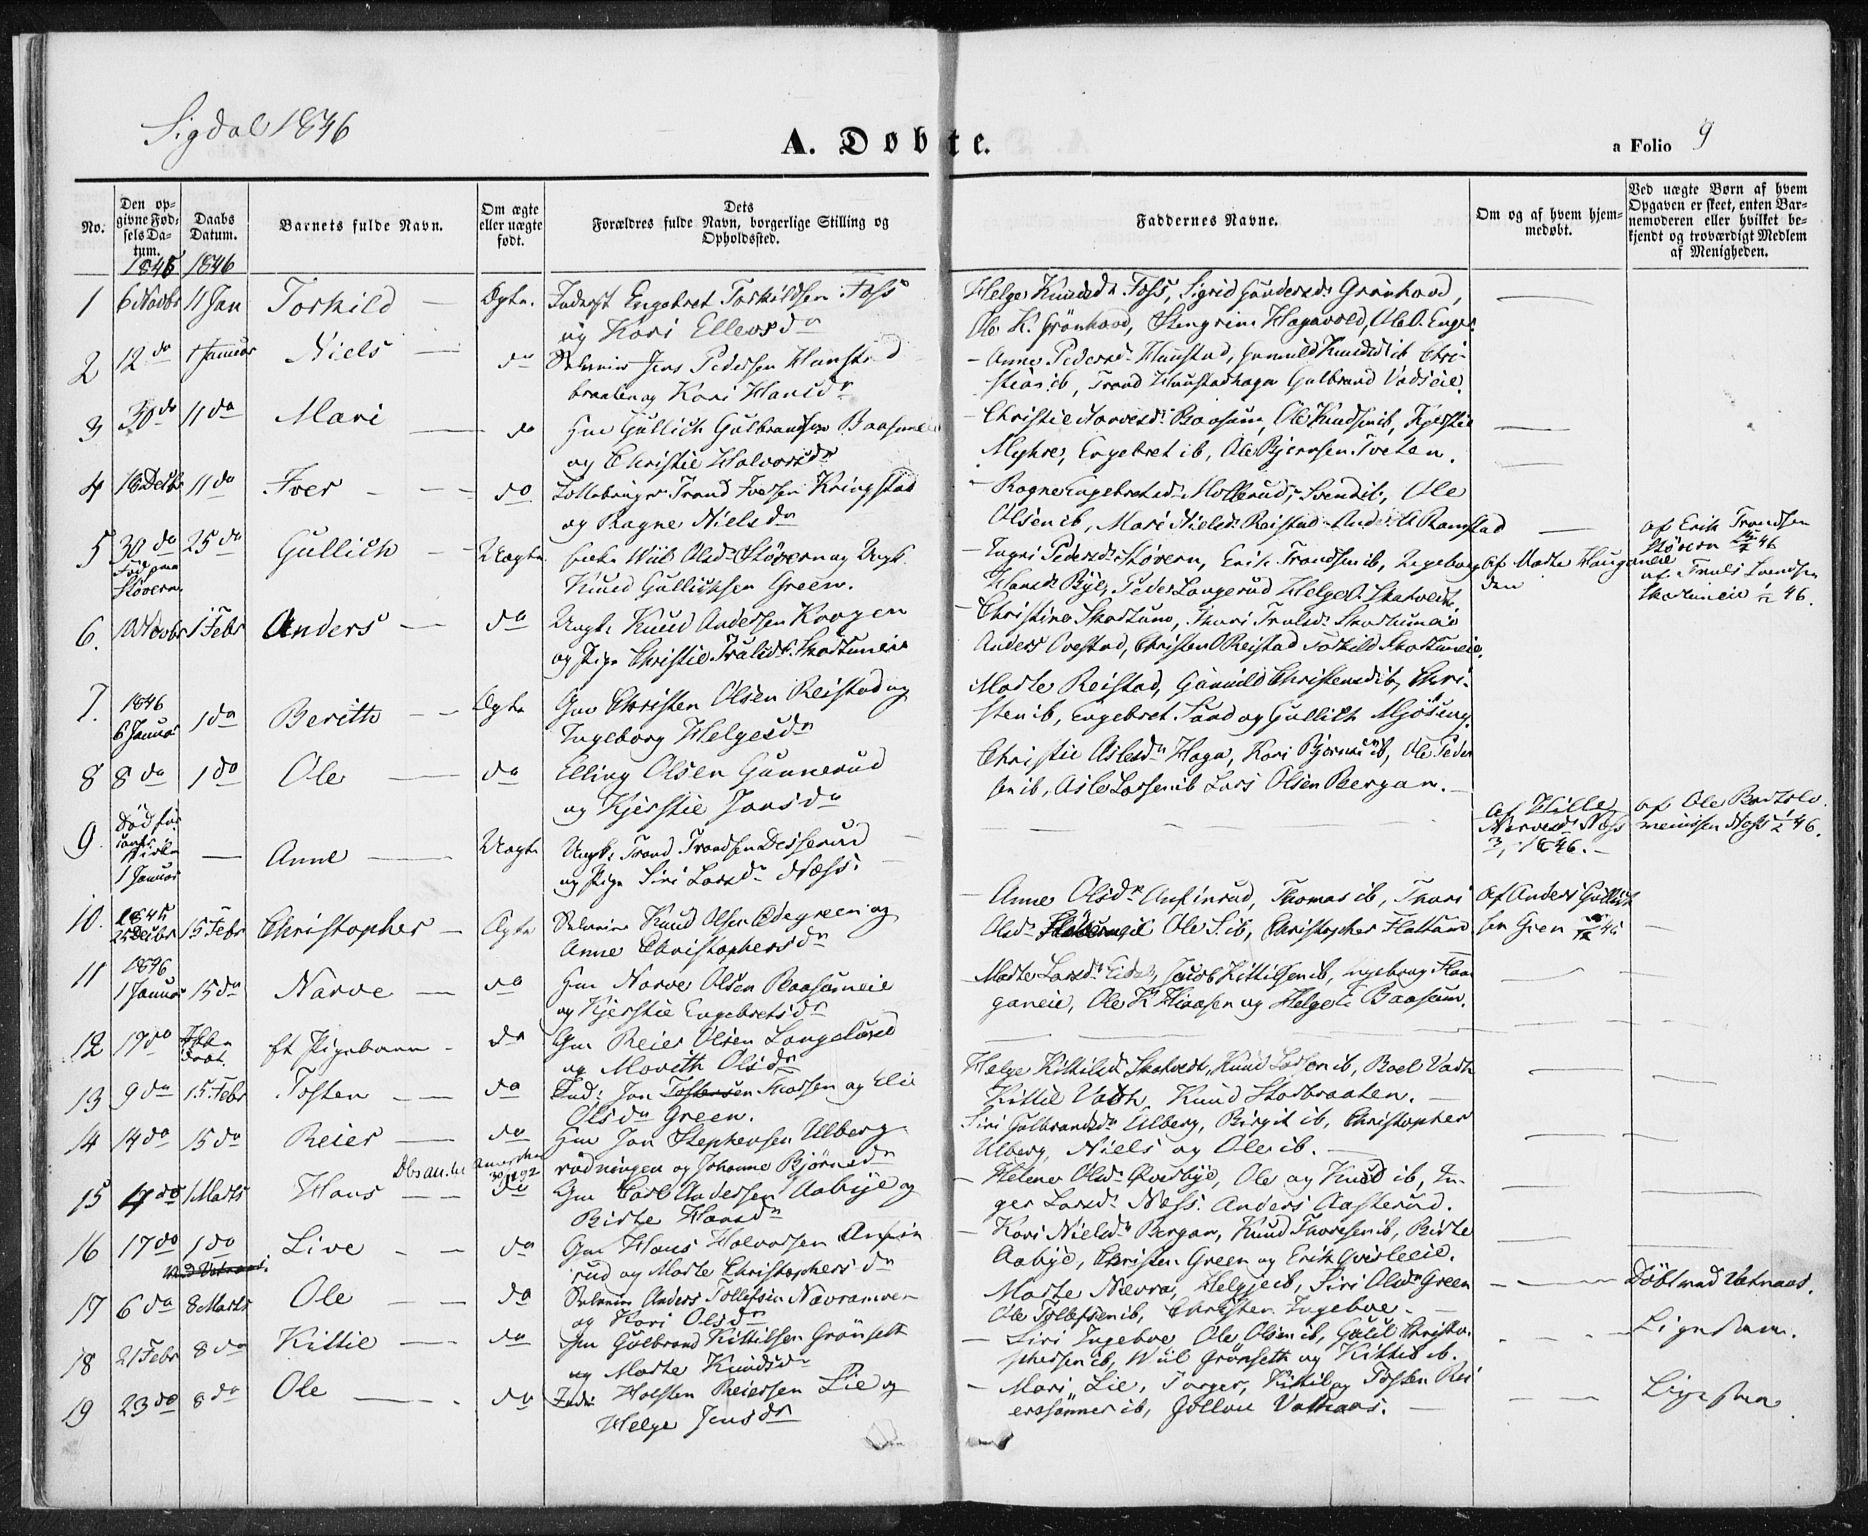 Sigdal 1846
A. Døbte.
a Folio 9
No.
Den op-
givne Fød-
sels Da-
tum.
1845
Daabs
Datum.
1846
Barnets fulde Navn.
Om ægte
eller uægte
født.
Dets
Forældres fulde Navn, borgerlige Stilling og
Opholdssted.
Faddernes Navne.
Om og af hvem hjem-
medøbt.
Ved uægte Børn af hvem
Opgaven er skeet, enten Bar-
nemoderen eller hvilket be-
kjendt og troværdigt Medlem
af Menigheden.
1 6 Novbr 11 Jan Torkild Ægte. Engebret Torkildsen Foss
og Kari Ellevsdr
Helge Knudsdr Foss, Sigrid Gundersdr Grønhovd,
Ole K. Grønhovd, Stengrim Hagavold, Ole O. Enger
2 12 do 1 Januar Niels do Selveier Jens Pedersen Haustad
braaten og Kari Hansdr
Anne Pedersdr Haustad, Gunnild Knudsd ib, Chri-
stian ib, Trond Haustadhagen Gulbrand
3 30 do 11 do Mari do Hm Gullich Gulbrandsen Baasum
og Christie Halvorsdr
Christie Narvesdr Baasum, Ole Knudsen ib, Kjerstie
Myhre, Engebret ib, Ole Bjørnsen Tveten.
4 16 Decbr 11 do Iver do Trond Iversen Kringstad
og Ragne Nielsdr
Ragne Engebretsd Mollerud, Svend ib, Ole
Olsen ib, Mari Nielsd Reistad Anders A Ramstad
5 30 do 25 do Gullich Uægte Enke Wiil Olsd Støvern og Ungk.
Fød paa
Støvern
Knud Gullichsen Green.
Ingri Pedersd Støvern, Erik Trondsen ib, Ingeborg
Hansd Bye, Peder Langerud Helge O. Skatvedt
af Marte Haugen
af Erik Trondsen
Støvern 46
6. 10 Novbr 1 Febr Anders do Ungk. Knud Andersen Kragen
og Pige Christie Trulsd. Skartumeie
Christine Skartum, Thori Trulsd. Skartumeie
Anders Ovestad, Christen O Reistad Torkild Skartumeie.
af Truls Svendsen
Skartumeie 46.
7. 1846
6 Januar 1 do Berithe Ægte Gm Christen Olsen Reistad og
Ingeborg Helgesdr
Marte Reistad, Gunnild Christensd ib, Chri-
sten ib, Engebret Saad og Gullich Mjøsung
8 8 do 1 do Ole do Elling Olsen Gunnerud
og Kjerstie Jonsdr
Christie Aslesdr Haga, Kari Bjørnsd ib, Ole Peder
sen ib, Asle Larsen ib Lars Olsen Bergan.
9. Død før
1 Januar Anne Uægte Ungk. Trond Trondsen Deiserud
og Pige Siri Larsdr Næss.
af Hille
Narvesd Næss
1846.
af Ole Bartolo
meussen Næss 46.
10. 1845
25 Decbr 15 Febr Christopher Ægte Selveier Knud Olsen Ødegreen og
Anne Christophersdr
Anne Olsdr Anfinrud, Thomas ib, Thori
Olsd Ole S. ib, Christopher Flattum
af Anders Gullich
sen Green 45
11 1846
1 Januar 15 do Narve do Hm Narve Olsen Baasumeie
og Kjerstie Engebretsdr
Marte Larsd. Eide, Jacob Kittilsen ib, Ingeborg Haa
ganeie, Ole K Hiaasen og Helge E Baasum.
12 19 do Ikke
Døbt. Et Pigebarn do Gm Reier Olsen Langelived
og Marith Olsdr
13 9 do 15 Febr Tosten do Ind. Jon Tostensen Thorsen og Eli
Olsdr Green.
Helge Kittilsd Skatvedt, Knud Larsen ib, Boel Vath
Kittil Vath. Knud Stadbraaten.
14 14 do 15 do Reier do Hm Jon Stephensen Ulberg
rødningen og Johanne Bjørnsdr
Siri Gulbrandsdr Ulberg, Birgit ib, Christopher
Ulberg, Niels og Ole ib.
15 4 do 1 Marts Hans do Gm Carl Andersen Aabye og
Birte Hansdr
Helene Olsd Qvisbye, Ole og Knud ib, In-
ger Larsd Næss. Anders Aasterud.
16 17 do 1 do Live do Gm Hans Halvorsen Anfin
rud og Marte Christophersdr
Kari Nielsdr Bergan, Knud Thoresen ib, Birte
Aabye, Christen Green og Erik Qvisleeie.
17 6 do 8 Marts Ole do Selveier Anders Tollefsen Nævramoen
og Kari Olsdr
Marte Nævra, Helge ib, Siri Olsdr Green
Ole Tollefsen ib, Christen Ingeboe.
Døbt ved Vatnaas.
18 21 Febr 8 do Kittil do Gm Gulbrand Kittilsen Grønseth
og Marte Knudsdr
Siri Ingeboe Ole Olsen ib, Gulil Christo-
phersen ib, Wiil Grønseth og Kittil ib.
Ligesaa.
19 23 do 8 do Ole do Ind. Holsten Reiersen Lie og
Helge Jensdr
Mari Lie, Torger, Kittil og Tosten Rei
erssønner ib, Vatnaas.
Ligesaa